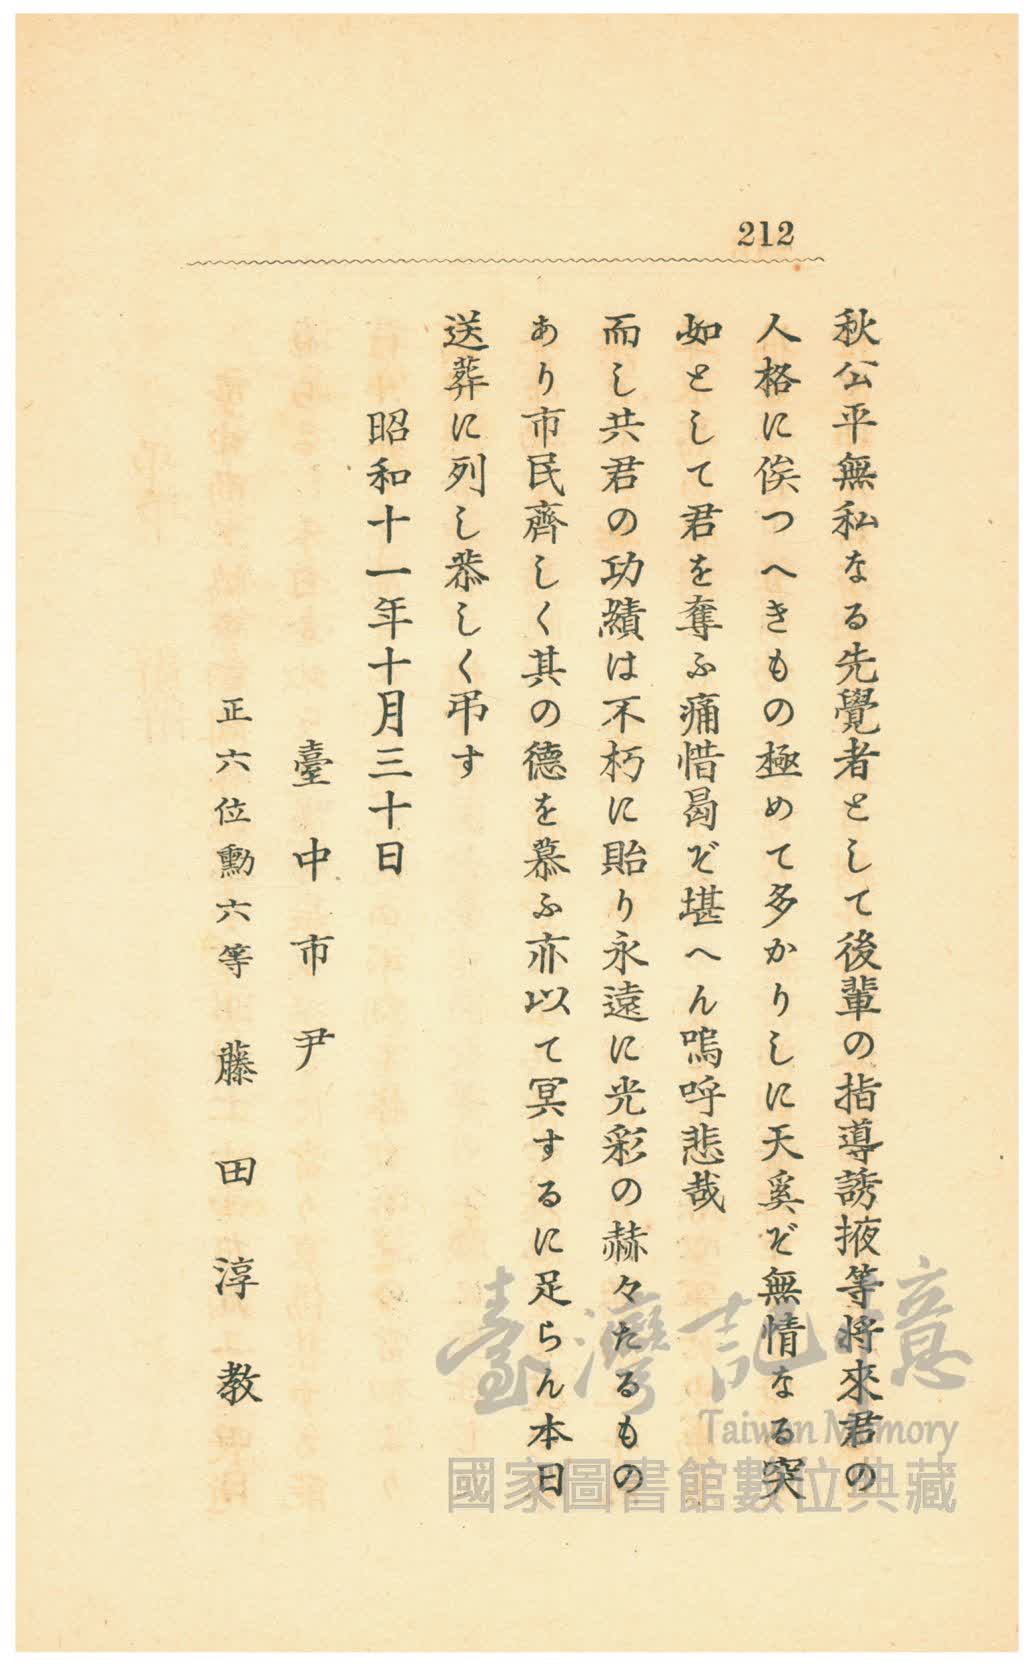 212
秋公平無私なる先覺者として後輩の指導誘掖等將來君の
人格に俟つへきもの極めて多かりしに天奚ぞ無情なる突
如として君を奪ふ痛惜曷ぞ堪へん嗚呼悲哉
而し共君の功績は不朽に貽り永遠に光彩の赫々たるもの
あり市民齊しく其の德を慕ふ亦以て冥するに足らん本日
送葬に列し恭しく弔す
昭和十一年十月三十日
臺中市尹
正六位勳六等藤田淳教
臺灣記憶
Taiwan Memory
國家圖書館數位典藏